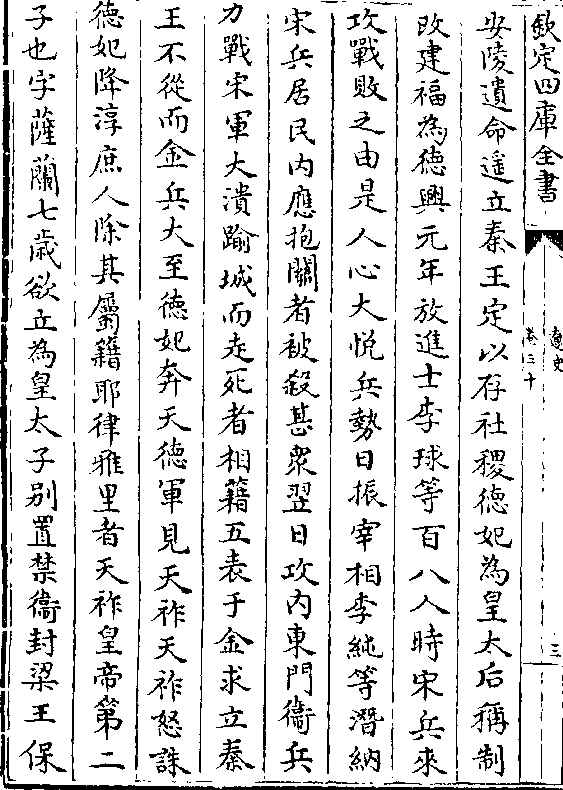 欽定四庫全書
遼史
卷三十
三
安陵遺命遥立秦王定以存社稷德妃為皇太后稱制
改建福為德興元年放進士李球等百八人時宋兵來
攻戰敗之由是人心大悦兵勢日振宰相李純等潛納
宋兵居民内應抱關者被殺甚衆翌日攻内東門衞兵
力戰宋軍大潰踰城而走死者相藉五表于金求立秦
王不從而金兵大至德妃奔天德軍見天祚天祚怒誅
德妃降淳庶人除其屬籍耶律雅里者天祚皇帝第二
子也字薩蘭七歳欲立為皇太子别置禁衞封梁王保